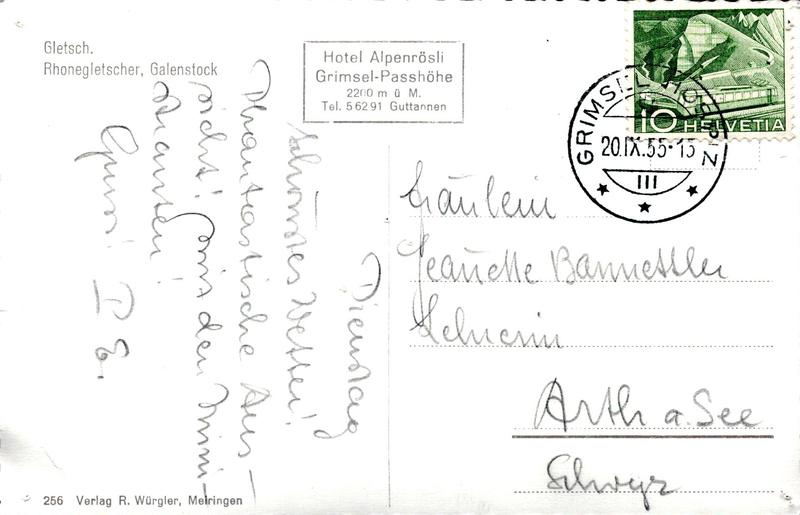 Gletsch.
Rhonegletscher, Galenstock
Hotel Alpenrösli
Grimsel-Passhöhe
2200 m ü M.
Tel. 5 62 91 Guttannen
10 HELVETIA
GRIMSEL HOSPIZ
20.IX.55-13
III
Dienstag
Schönstes Wetter!
Phantastische Aus-
sicht! Mit den Mini-
stranten!
Gruss!
P E.
Fräulein
Jeanette Barmettler
Lehrerin
Arth a. See
Schwyz
256 Verlag R. Würgler, Meiringen